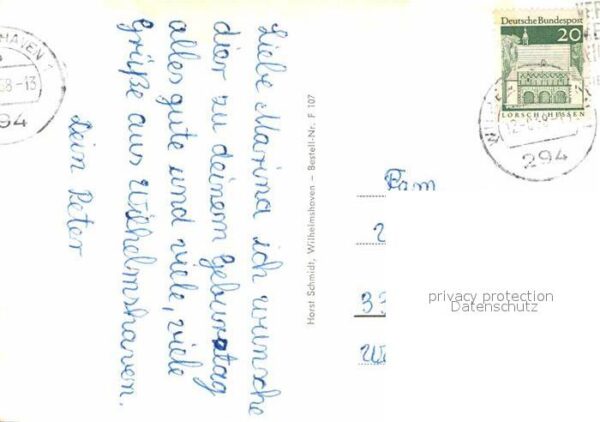 Liebe Marina ich wünsche
dir zu deinem Geburtstag
alles gute und viele, viele
Grüße aus Wilhelmshaven.
Dein Peter
Horst Schmidt, Wilhelmshaven – Bestell-Nr. F 107
HAVEN 1
68-13
294
Deutsche Bundespost
20
LORSCH/HESSEN
294
Fam
2
33
privacy protection
Datenschutz